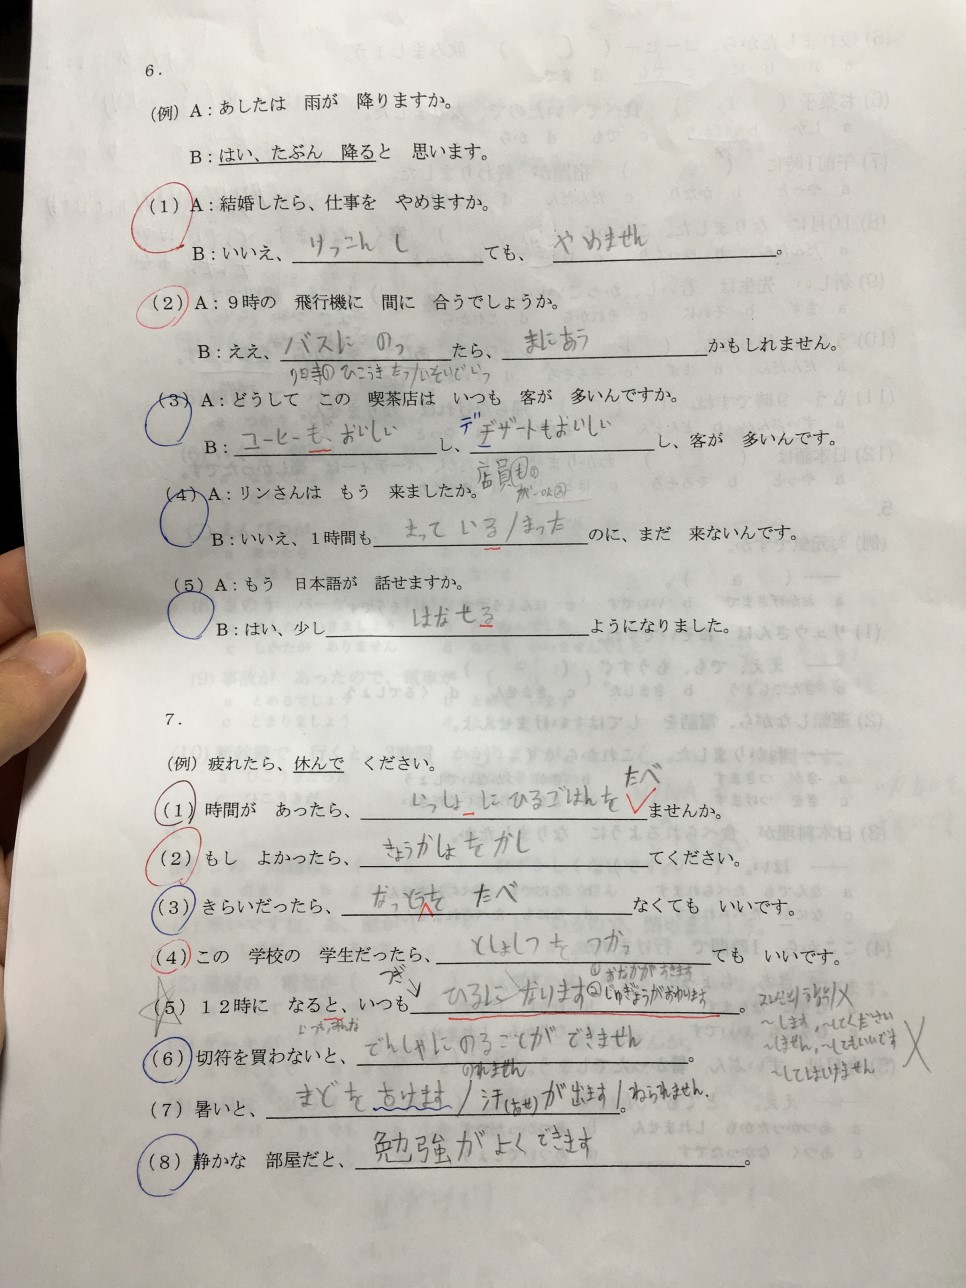 6.
(例) A：あしたは 雨が 降りますか。
B：はい、たぶん 降ると 思います。
(1) A：結婚したら、仕事を やめますか。
B：いいえ、けっこん し ても、 やめません 。
(2) A：9時の 飛行機に 間に 合うでしょうか。
B：ええ、バスに のっ たら、まにあう かもしれません。
ひこうき
(3) A：どうして この 喫茶店は いつも 客が 多いんですか。
デ
B：コーヒーも、おいしい し、デザートもおいしい し、客が 多いんです。
店員
(4) A：リンさんは もう 来ましたか。
B：いいえ、1時間も まっている/まった のに、まだ 来ないんです。
(5) A：もう 日本語が 話せますか。
B：はい、少し はなせる ようになりました。
7.
(例) 疲れたら、休んで ください。
たべ
(1) 時間が あったら、いっしょにひるごはんを ませんか。
(2) もし よかったら、きょうかしょをかし てください。
(3) きらいだったら、なっとうを たべ なくても いいです。
(4) この 学校の 学生だったら、としょしつを つかっ ても いいです。
①おなかがすきます
(5) 12時に なると、いつも ひるに なります ②じゅぎょうがおわります 。
～します，～してください
～しません，～してもいいです
～してはいけません
(6) 切符を買わないと、でんしゃにのることが できません 。
のれません
(7) 暑いと、まどを あけます / 汗(あせ)が出ます / ねられません.
(8) 静かな 部屋だと、勉強がよくできます 。